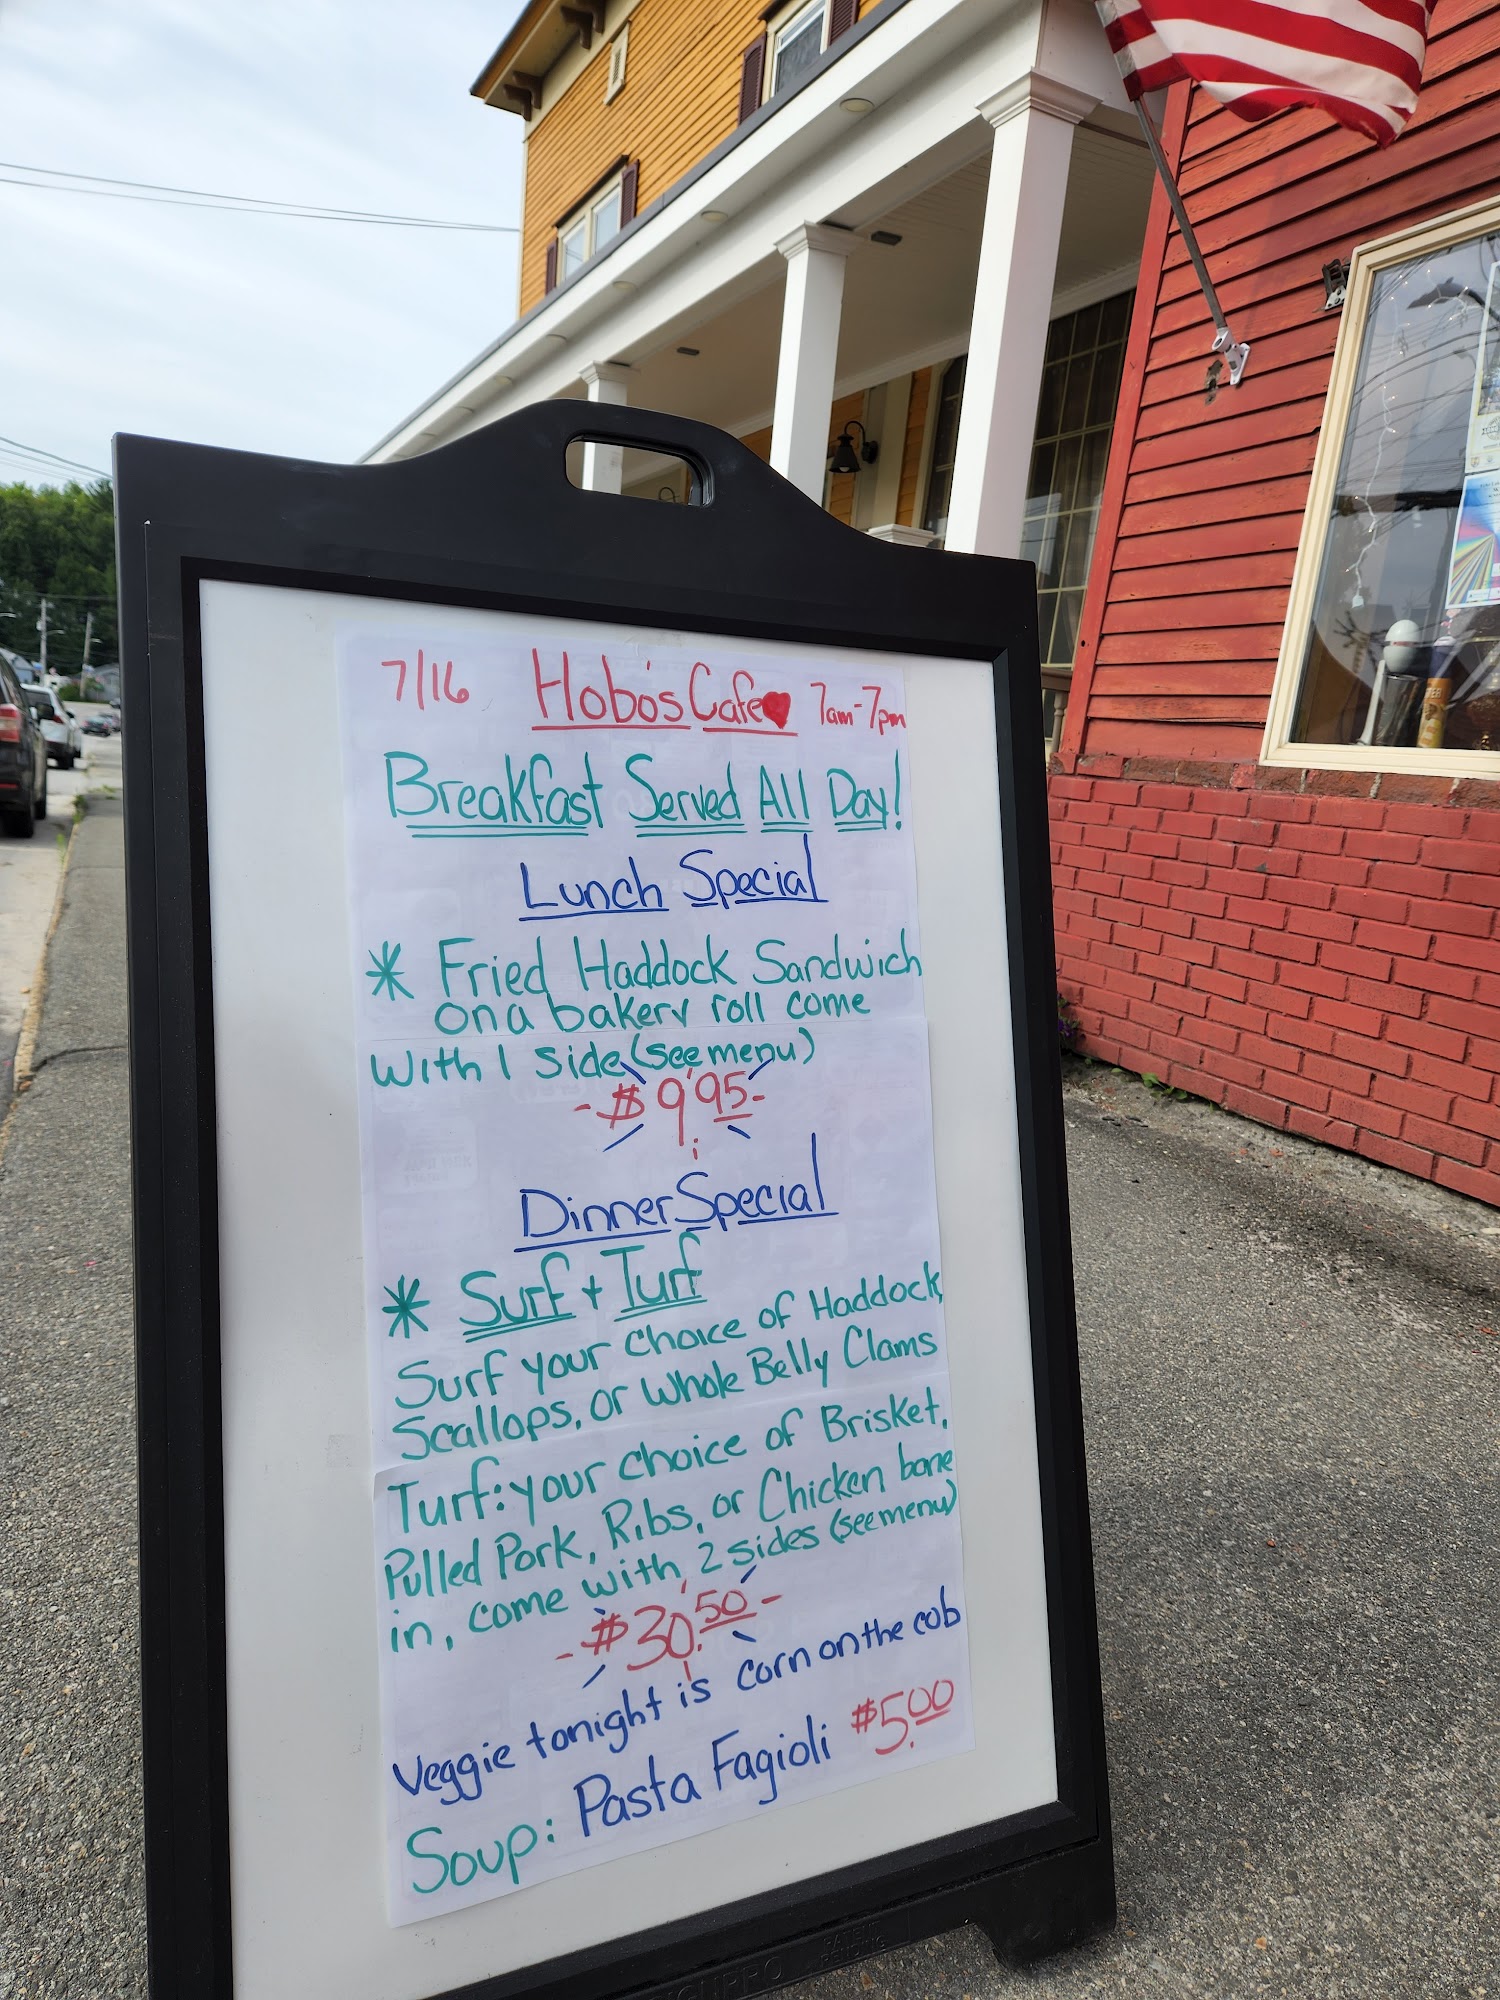 7/16 Hobo's Cafe 7am-7pm
Breakfast Served All Day!
Lunch Special
* Fried Haddock Sandwich
on a bakery roll come
with 1 side (see menu)
-$9.95-
Dinner Special
* Surf + Turf
Surf your choice of Haddock,
Scallops, or Whole Belly Clams
Turf: your choice of Brisket,
Pulled Pork, Ribs, or Chicken bone
in, come with 2 sides (see menu)
-$30.50-
Veggie tonight is corn on the cob
Soup: Pasta Fagioli $5.00